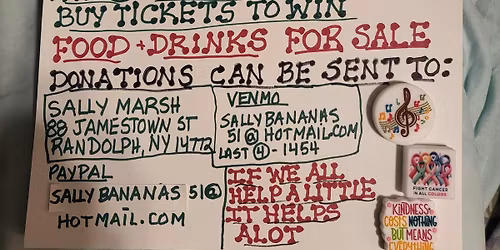 BUY TICKETS TO WIN
FOOD + DRINKS FOR SALE
DONATIONS CAN BE SENT TO:
SALLY MARSH
88 JAMESTOWN ST
RANDOLPH, NY 14772
VENMO
SALLYBANANAS
51@HOTMAIL.COM
LAST 4 - 1454
PAYPAL
SALLY BANANAS 51@
HOTMAIL.COM
IF WE ALL
HELP A LITTLE
IT HELPS
ALOT
FIGHT CANCER
IN ALL COLORS
KINDNESS
COSTS NOTHING
BUT MEANS
EVERYTHING